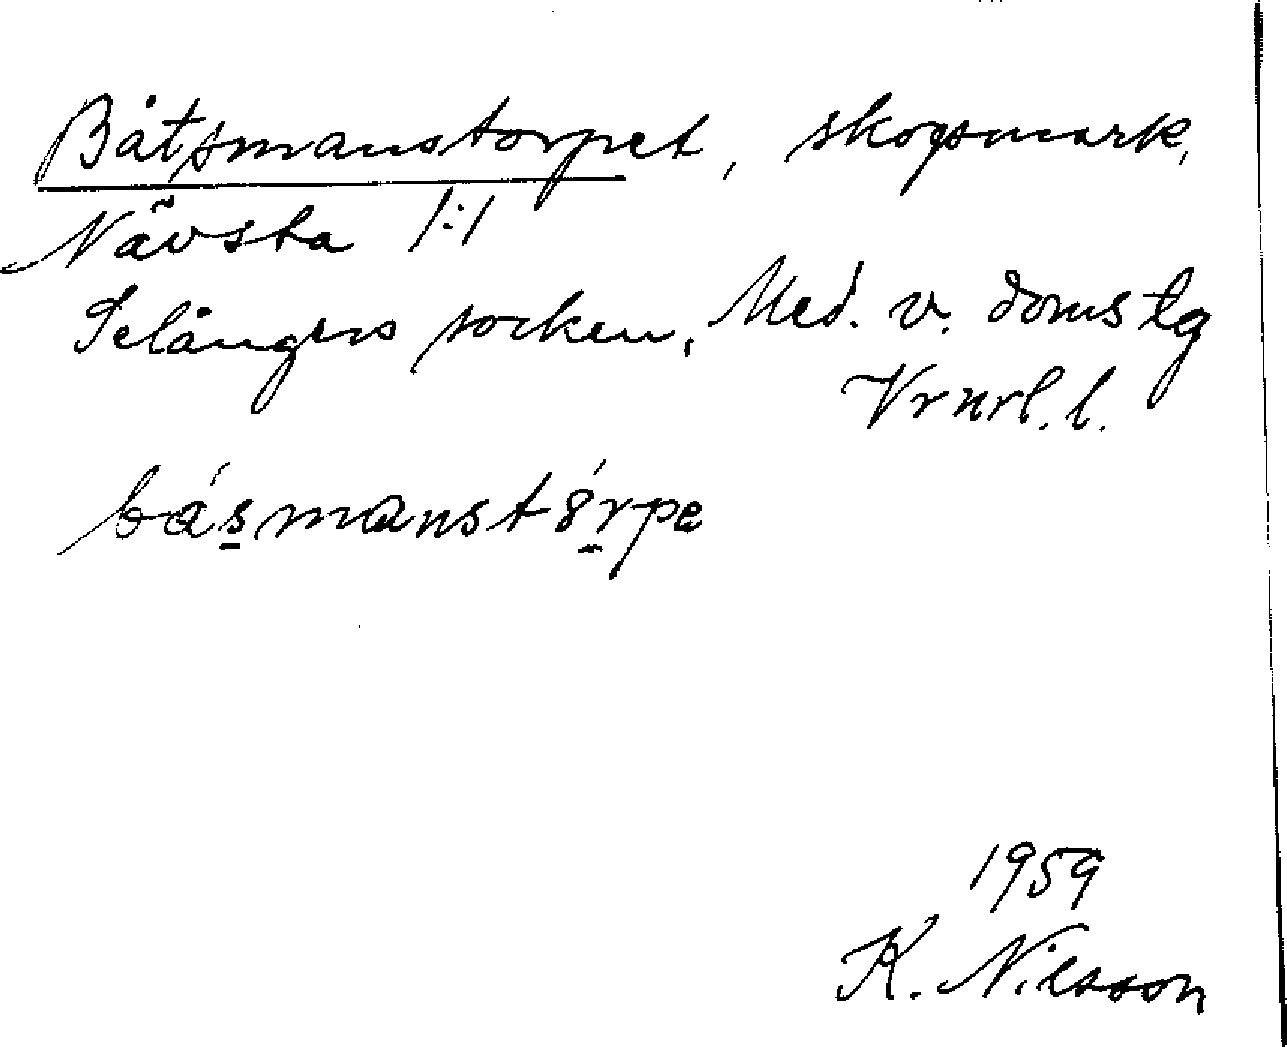 Båtsmanstorpet, skogsmark,
Nävsta 1:1
Selångers socken, Med. v. doms tg
Vrnrl. l.
básmanstórpe
1959
K. Nilsson